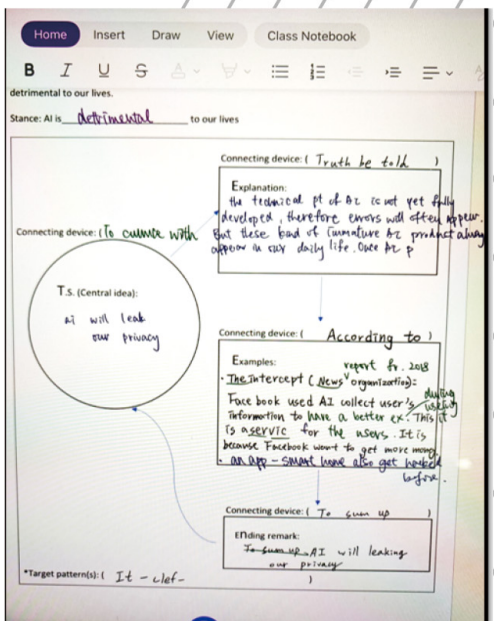 Home Insert Draw View Class Notebook
B I U S A
detrimental to our lives.
Stance: AI is detrimental to our lives
Connecting device: ( Truth be told )
Explanation:
the technical pt of AI is not yet fully
developed, therefore errors will often appear.
But these kind of immature AI product
appear in our daily life. Once AI p
Connecting device: (To with
T.S. (Central idea):
ai will leak
our privacy
Connecting device: ( According to )
Examples: report fr. 2018
• The intercept (News organization):
during using it
Face book used AI collect user's
information to have a better ex. This
is a servic for the users. It is
because Facebook want to get more money.
• an app - smart home also get hacked
before.
Connecting device: ( To sum up )
Ending remark:
To sum up, AI will leaking
our privacy
*Target pattern(s): ( It - clef- )